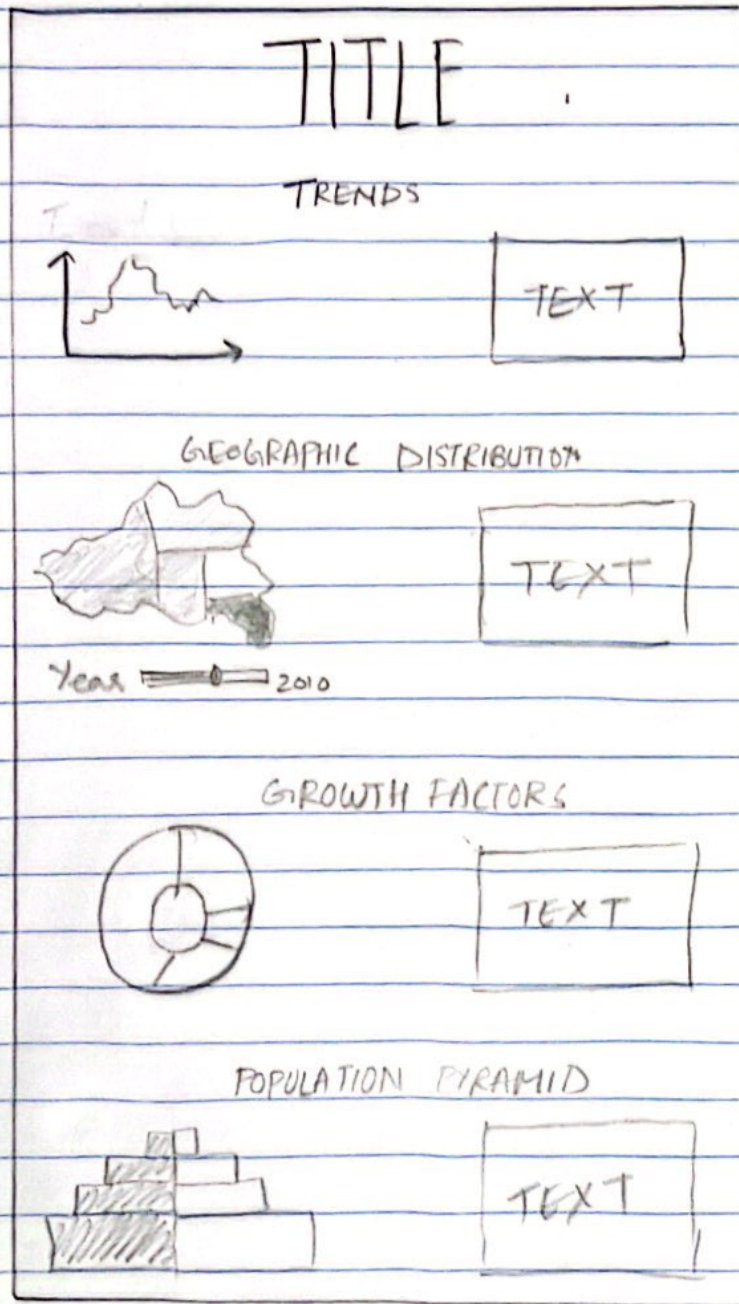 TITLE
TRENDS
TEXT
GEOGRAPHIC DISTRIBUTION
TEXT
Year 2010
GROWTH FACTORS
TEXT
POPULATION PYRAMID
TEXT